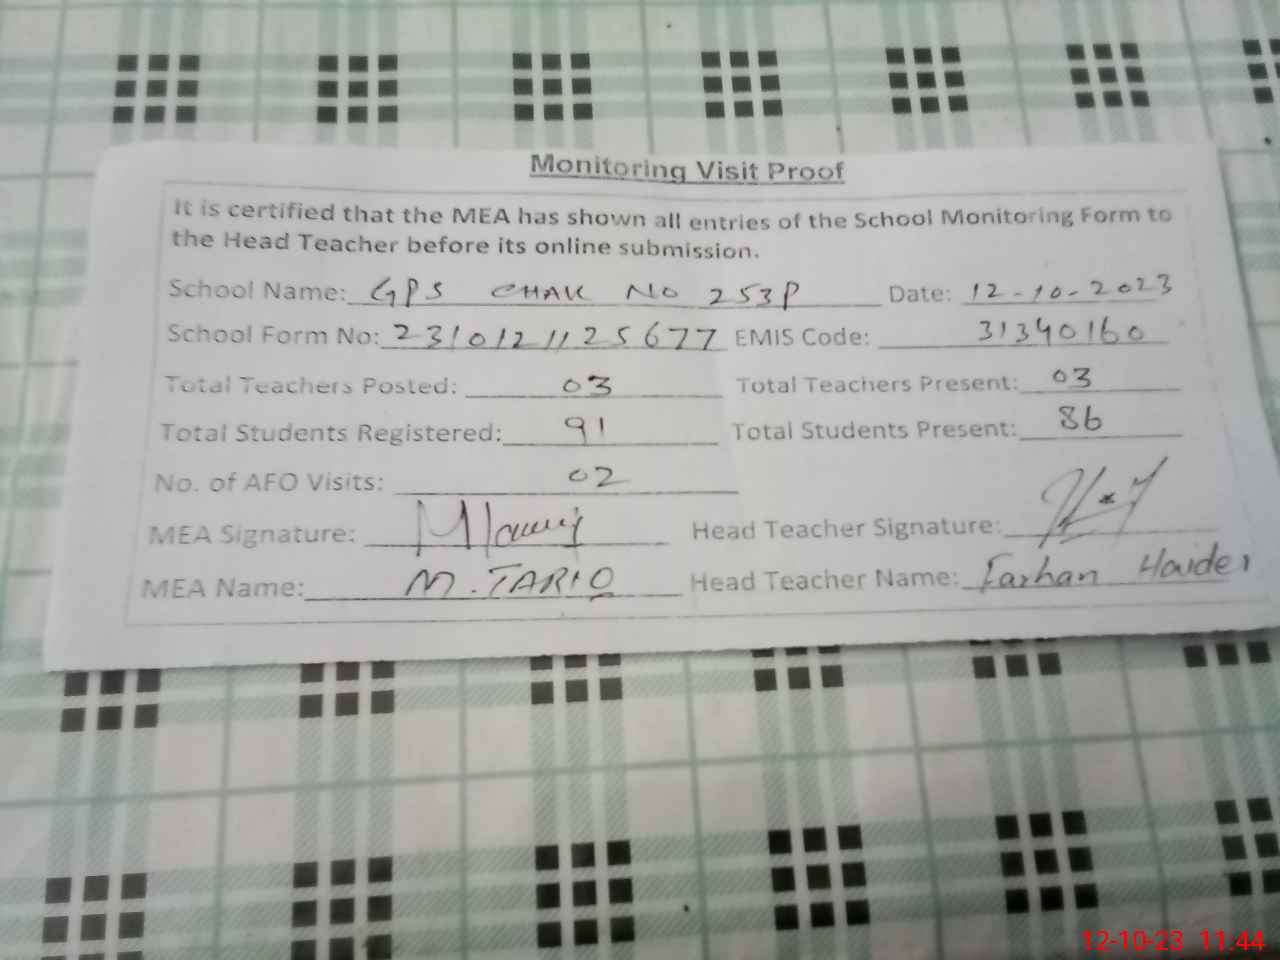 Monitoring Visit Proof
It is certified that the MEA has shown all entries of the School Monitoring Form to
the Head Teacher before its online submission.
School Name: GPS CHAK NO 253P Date: 12-10-2023
School Form No: 2310121125677 EMIS Code: 31340160
Total Teachers Posted: 03 Total Teachers Present: 03
Total Students Registered: 91 Total Students Present: 86
No. of AFO Visits: 02
MEA Signature: Head Teacher Signature:
MEA Name: M. TARIQ Head Teacher Name: Farhan Haider
12-10-23 11:44